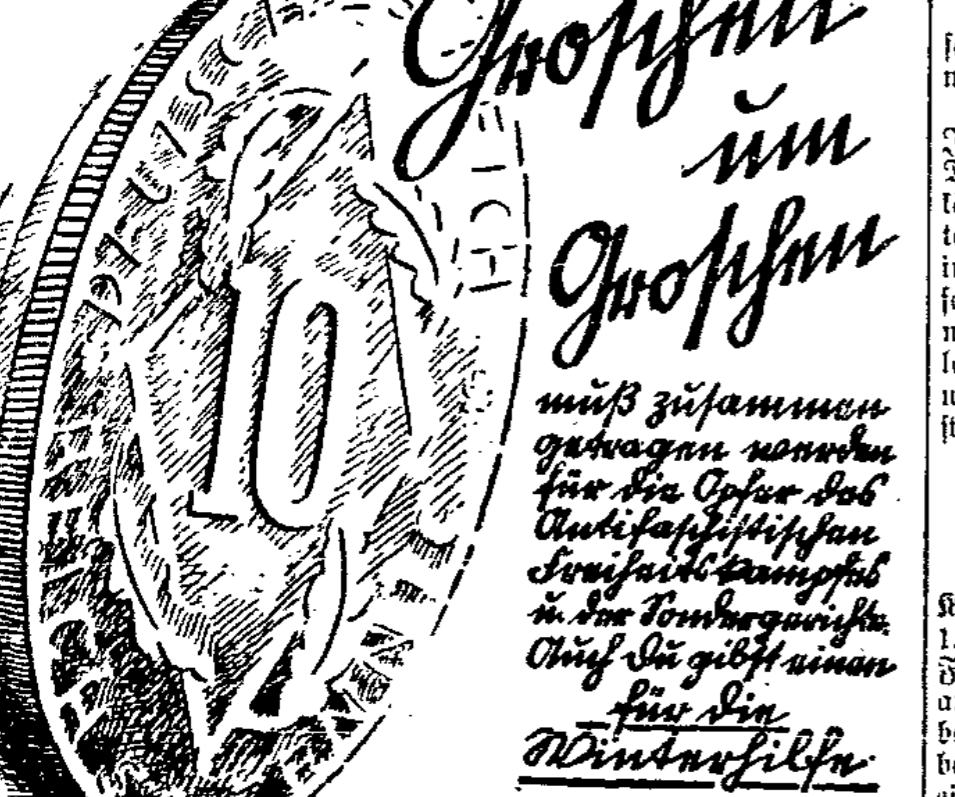 Groschen
um
Groschen
10
muß zusammen
getragen werden
für die Opfer des
Antifaschistischen
Freiheitskampfes
u. der Sondergerichte.
Auch Du gibst einen
für die
Winterhilfe